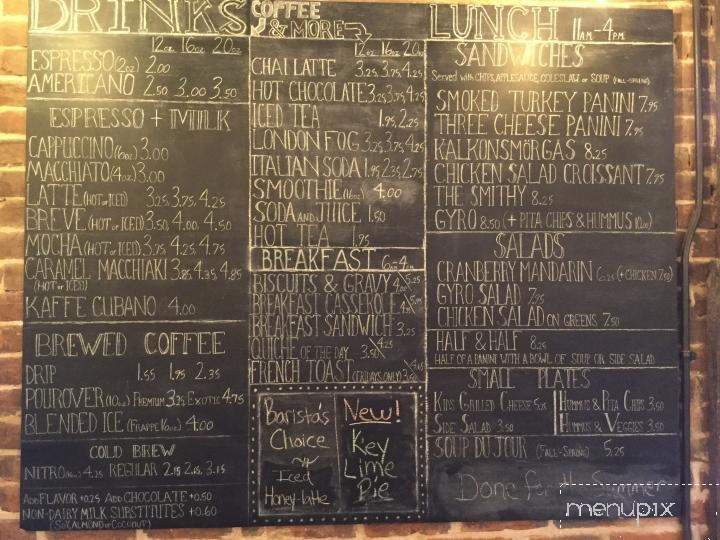 DRINKS
12oz 16oz 20oz
ESPRESSO (2oz) 2.00
AMERICANO 2.50 3.00 3.50
ESPRESSO + MILK
CAPPUCCINO (6oz) 3.00
MACCHIATO (4oz) 3.00
LATTE (HOT or ICED) 3.25 3.75 4.25
BREVE (HOT or ICED) 3.50 4.00 4.50
MOCHA (HOT or ICED) 3.75 4.25 4.75
CARAMEL MACCHIAKI 3.85 4.35 4.85
(HOT or ICED)
KAFFE CUBANO 4.00
BREWED COFFEE
DRIP 1.55 1.95 2.35
POUROVER (10oz) PREMIUM 3.25 EXOTIC 4.75
BLENDED ICE (FRAPPE 16oz) 4.00
COLD BREW
NITRO 4.25 REGULAR 2.15 2.65 3.15
ADD FLAVOR +0.25 ADD CHOCOLATE +0.50
NON-DAIRY MILK SUBSTITUTES +0.60
(SOY, ALMOND or COCONUT)
COFFEE
& MORE
12oz 16oz 20oz
CHAI LATTE 3.25 3.75 4.25
HOT CHOCOLATE 3.25 3.75 4.25
ICED TEA 1.95 2.25
LONDON FOG 3.25 3.75 4.25
ITALIAN SODA 1.95 2.35 2.75
SMOOTHIE (16oz) 4.00
SODA AND JUICE 1.50
HOT TEA 1.95
BREAKFAST
BISCUITS & GRAVY 5.25
BREAKFAST CASSEROLE
BREAKFAST SANDWICH 3.25
QUICHE OF THE DAY 4.25
FRENCH TOAST (FRIDAYS ONLY)
Barista's
Choice
Iced
Honey-latte
New!
Key
Lime
Pie
LUNCH 11AM-4PM
SANDWICHES
Served with CHIPS, APPLESAUCE, COLESLAW or SOUP (FALL-SPRING)
SMOKED TURKEY PANINI 7.95
THREE CHEESE PANINI 7.95
KALKONSMÖRGAS 8.25
CHICKEN SALAD CROISSANT 7.95
THE SMITHY 8.25
GYRO 8.50 (+ PITA CHIPS & HUMMUS 10.00)
SALADS
CRANBERRY MANDARIN 6.25 (+ CHICKEN 7.50)
GYRO SALAD 7.95
CHICKEN SALAD ON GREENS 7.50
HALF & HALF 8.25
HALF OF A PANINI WITH A BOWL OF SOUP OR SIDE SALAD
SMALL PLATES
KIDS GRILLED CHEESE HUMMUS & PITA CHIPS 3.50
SIDE SALAD 3.50 HUMMUS & VEGGIES 3.50
SOUP DU JOUR (FALL-SPRING) 5.25
Done for the Summer
menupix